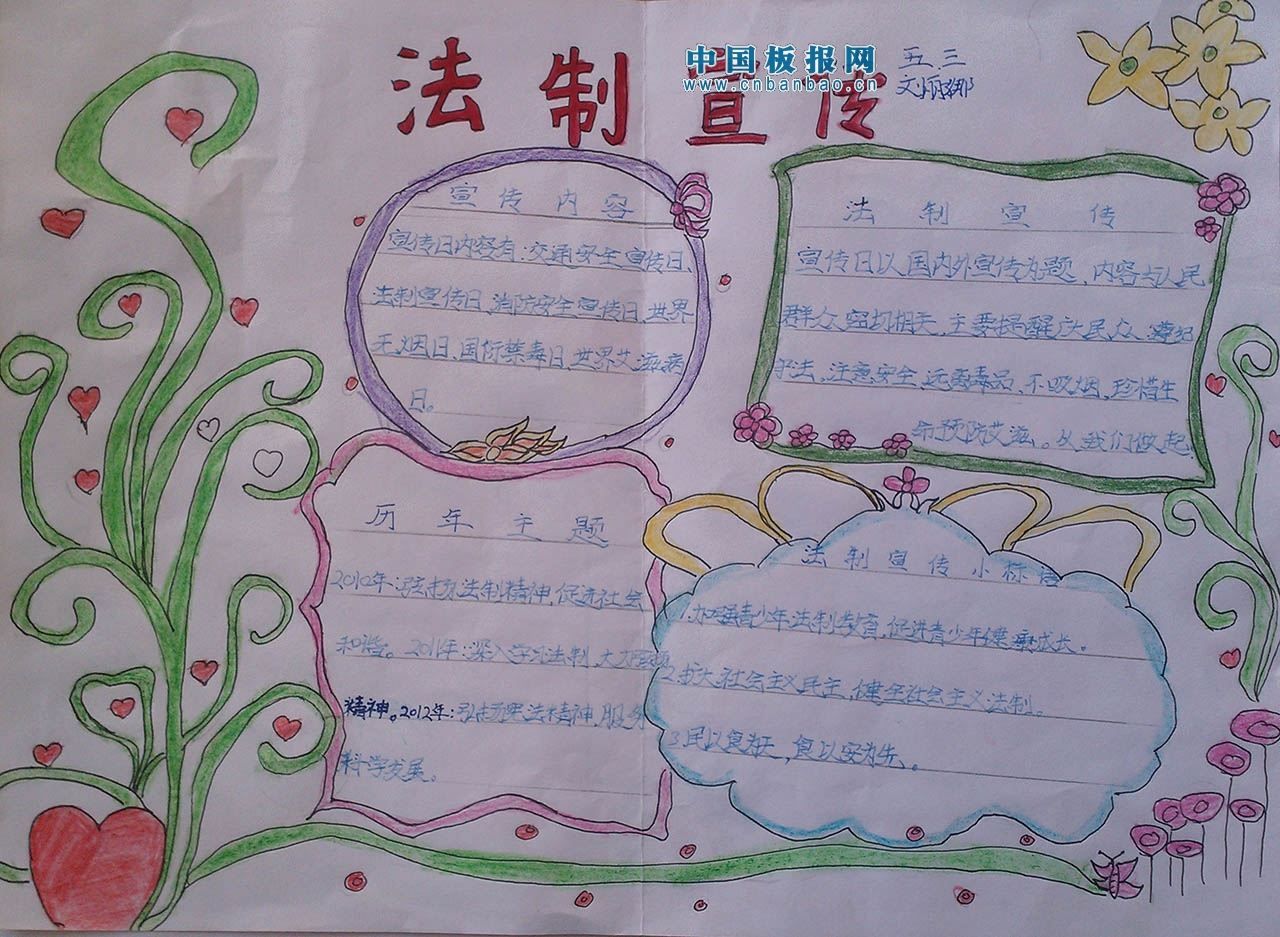 法制宣传
中国板报网
www.cnbanbao.cn
五三
刘丽娜
宣传内容
宣传日内容有:交通安全宣传日、
法制宣传日、消防安全宣传日、世界
无烟日、国际禁毒日、世界艾滋病
日。
法制宣传
宣传日以国内外宣传为题、内容与人民
群众密切相关,主要提醒广大民众、遵纪
守法、注意安全、远离毒品、不吸烟、珍惜生
命预防艾滋。从我们做起
历年主题
2010年:弘扬法制精神,促进社会
和谐。2011年:深入学习法制,大力
精神。2012年:弘扬宪法精神,服务
科学发展。
法制宣传小标语
1.加强青少年法制教育,促进青少年健康成长。
2.扩大社会主义民主,健全社会主义法制。
3.民以食为天,食以安为先。